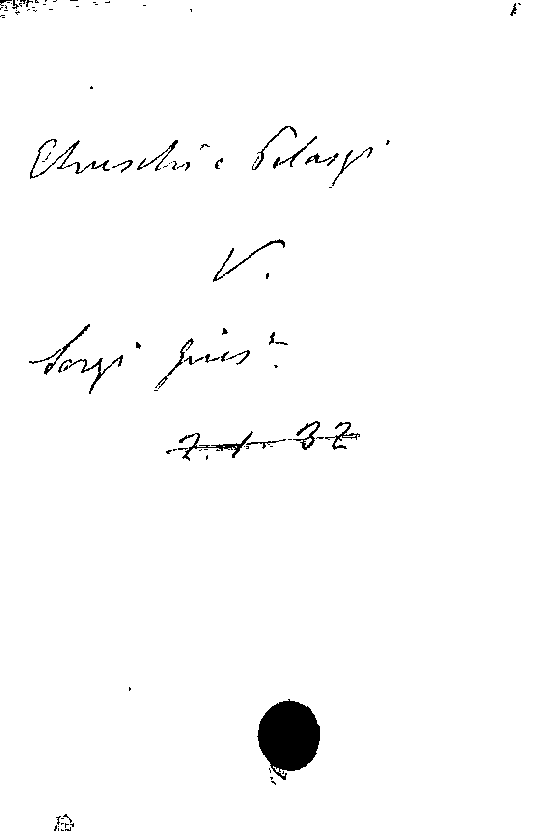 Etruschi e Pelasgi
V.
Sergi Gius.e
7. 1. 32